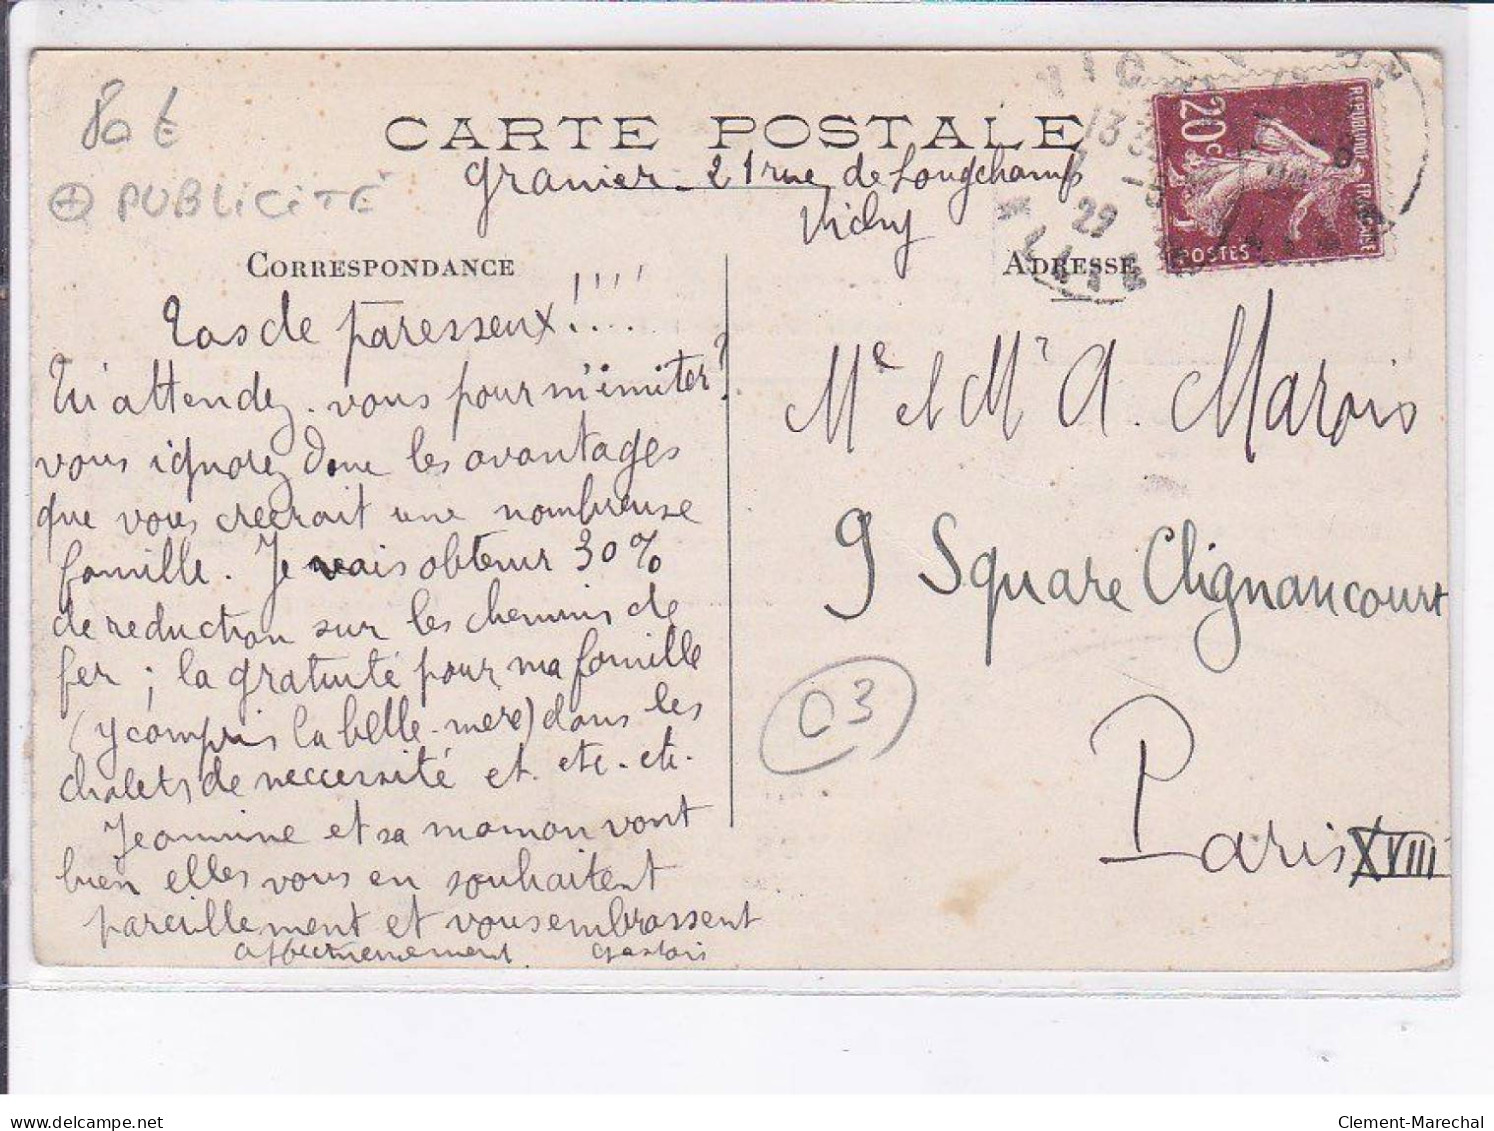 80 €
+ PUBLICITÉ
CARTE POSTALE
Granier - 21 rue de Longchamp
Vichy
20c
REPUBLIQUE FRANÇAISE
POSTES
13 3
29
CORRESPONDANCE
ADRESSE
Tas de paresseux !!!!
Qu'attendez-vous pour m'imiter ?
vous ignorez donc les avantages
que vous creerait une nombreuse
famille. Je vais obtenir 30%
de reduction sur les chemins de
fer ; la gratuité pour ma famille
(y compris la belle-mere) dans les
chalets de neccessité et. etc. etc.
Jeannine et sa maman vont
bien elles vous en souhaitent
pareillement et vous embrassent
affectueusement. Gaston
Me et Mr A. Marois
9 Square Clignancourt
03
Paris XVIII
www.delcampe.net
Clement-Marechal